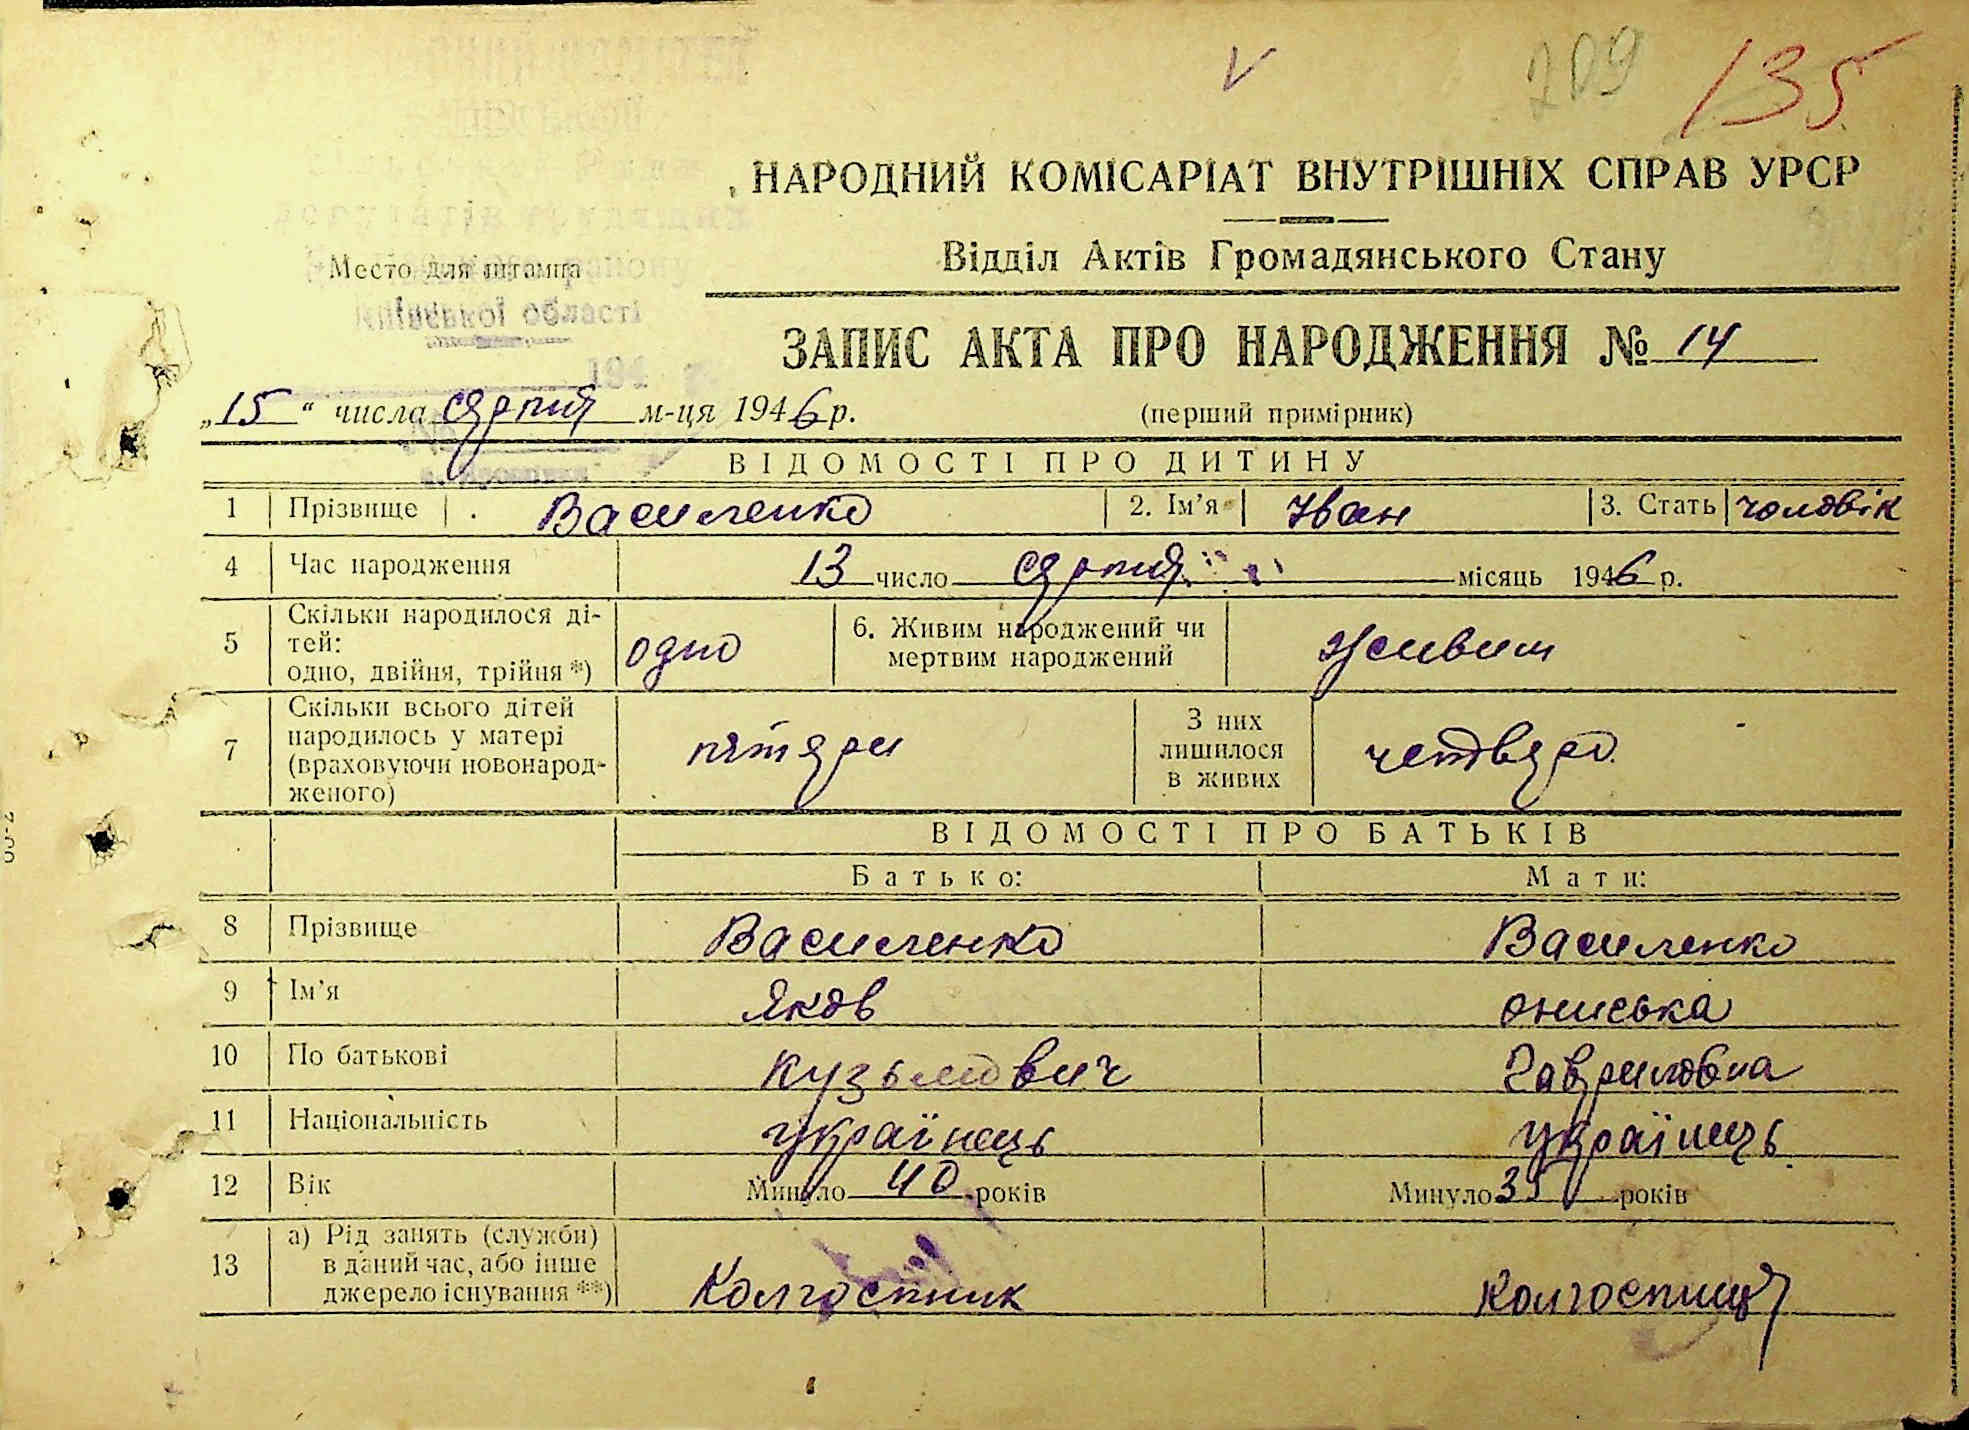 209 135
НАРОДНИЙ КОМІСАРІАТ ВНУТРІШНІХ СПРАВ УРСР
Відділ Актів Громадянського Стану
Место для штампа
Київської області
ЗАПИС АКТА ПРО НАРОДЖЕННЯ № 14
194
„15“ числа серпня м-ця 1946 р. (перший примірник)
ВІДОМОСТІ ПРО ДИТИНУ
1 Прізвище Василенко 2. Ім'я Іван 3. Стать чоловік
4 Час народження 13 число серпня місяць 1946 р.
5 Скільки народилося ді-
тей:
одно, двійня, трійня *) одно 6. Живим народжений чи
мертвим народжений живим
7 Скільки всього дітей
народилось у матері
(враховуючи новонарод-
женого) пятери З них
лишилося
в живих четверо
ВІДОМОСТІ ПРО БАТЬКІВ
Батько: Мати:
8 Прізвище Василенко Василенко
9 Ім'я Яков ониська
10 По батькові Кузьмович Гавриловна
11 Національність українець українець
12 Вік Минуло 40 років Минуло 35 років
13 а) Рід занять (служби)
в даний час, або інше
джерело існування **) Колгоспник Колгоспниця